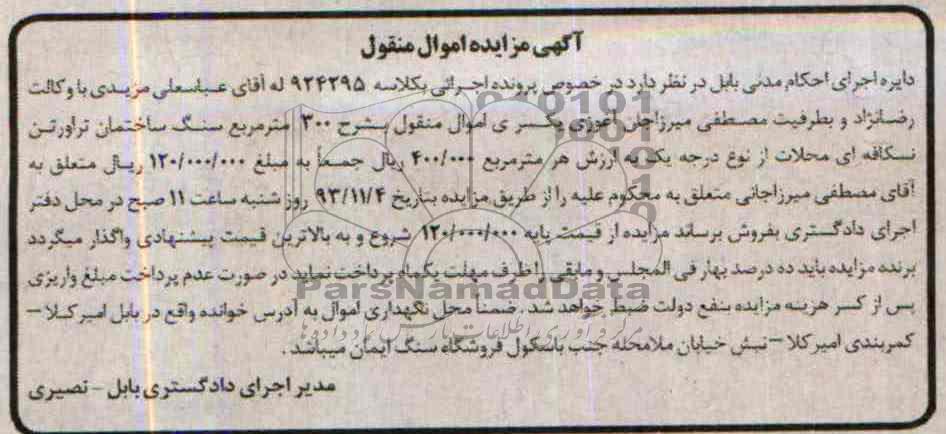 آگهی مزایده اموال منقول
دایره اجرای احکام مدنی بابل در نظر دارد در خصوص پرونده اجرائی بکلاسه ۹۲۴۲۹۵ له آقای عباسعلی مزیدی با وکالت
رضانژاد و بطرفیت مصطفی میرزاجان آغوزی یکسری اموال منقول بشرح ۳۰۰ مترمربع سنگ ساختمان تراورتن
نسکافه ای محلات از نوع درجه یک به ارزش هر مترمربع ۴۰۰/۰۰۰ ریال جمعاً به مبلغ ۱۲۰/۰۰۰/۰۰۰ ریال متعلق به
آقای مصطفی میرزاجانی متعلق به محکوم علیه را از طریق مزایده بتاریخ ۹۳/۱۱/۴ روز شنبه ساعت ۱۱ صبح در محل دفتر
اجرای دادگستری بفروش برساند مزایده از قیمت پایه ۱۲۰/۰۰۰/۰۰۰ شروع و به بالاترین قیمت پیشنهادی واگذار میگردد
برنده مزایده باید ده درصد بهار فی المجلس و مابقی را ظرف مهلت یکماه پرداخت نماید در صورت عدم پرداخت مبلغ واریزی
پس از کسر هزینه مزایده بنفع دولت ضبط خواهد شد . ضمناً محل نگهداری اموال به آدرس خوانده واقع در بابل امیرکلا –
کمربندی امیرکلا – نبش خیابان ملامحله جنب باسکول فروشگاه سنگ ایمان میباشد .
مدیر اجرای دادگستری بابل – نصیری
ParsNamadData